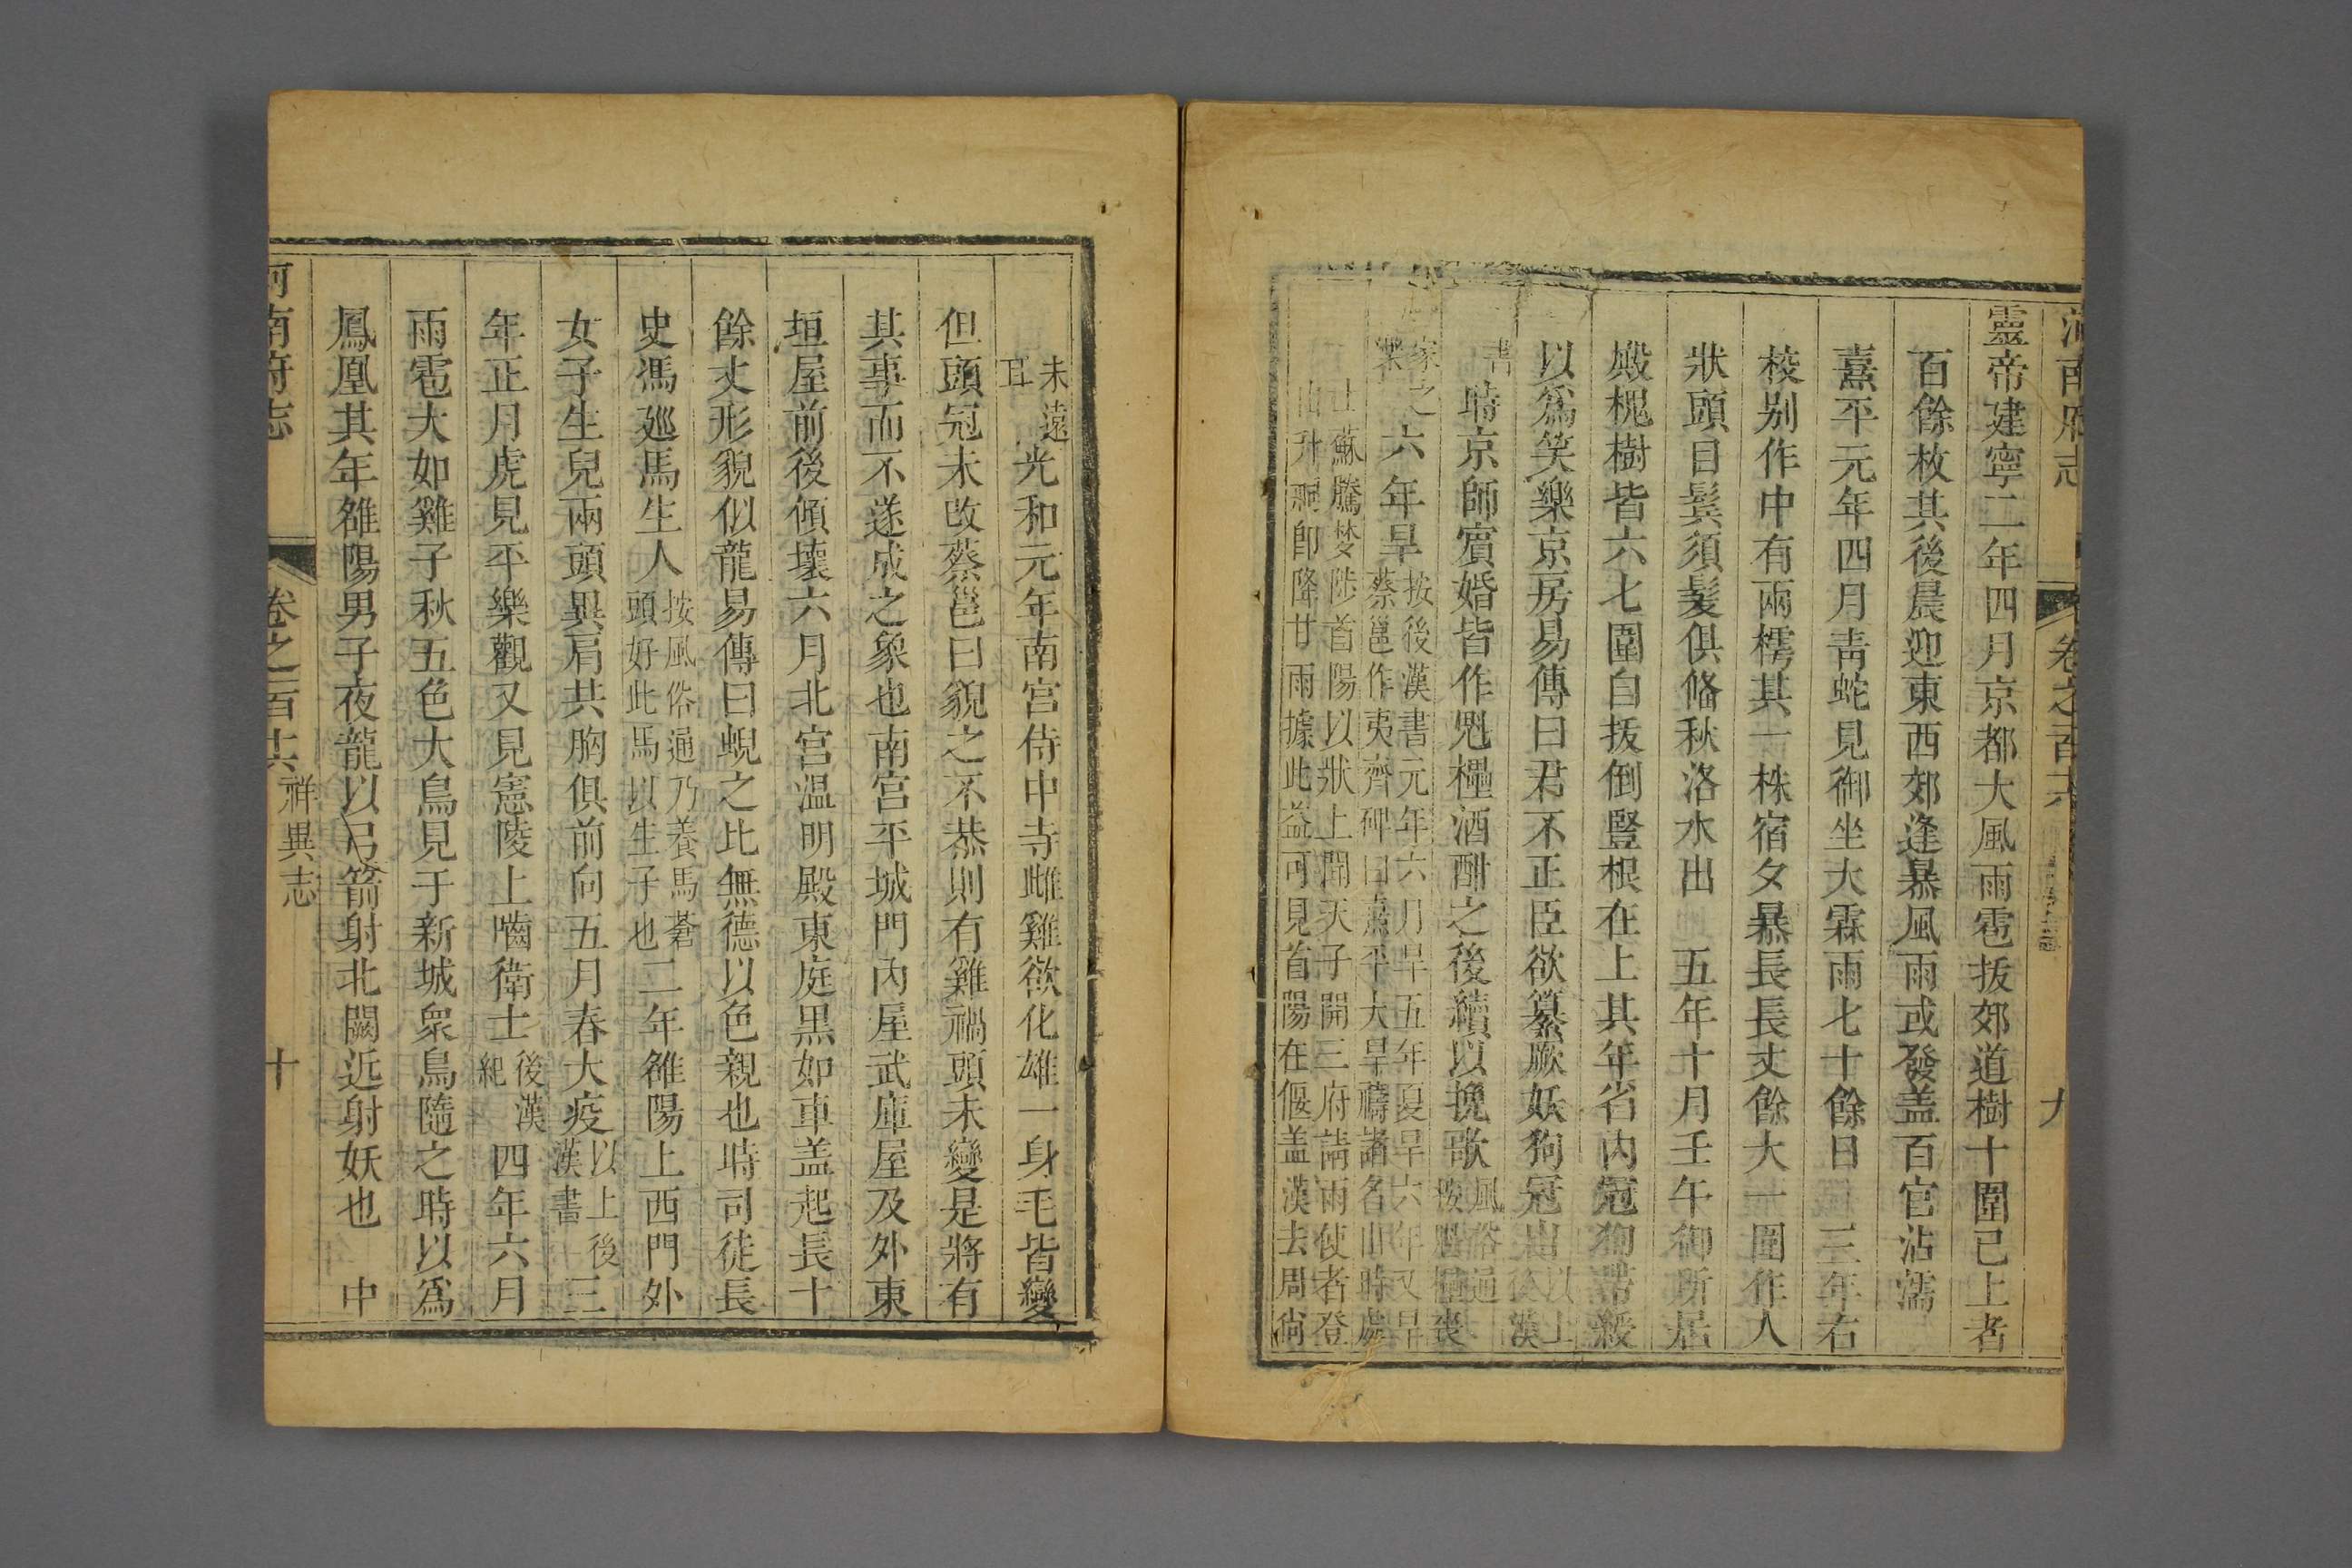 河南府志 卷之百十六 九
靈帝建寧二年四月京都大風雨雹拔郊道樹十圍已上者
百餘枚其後晨迎東西郊逢暴風雨或發盖百官沾濡
熹平元年四月青蛇見御坐大霖雨七十餘日 三年右
校别作中有兩樗其一株宿夕暴長長丈餘大一圍作人
狀頭目鬢須髮俱俻秋洛水出 五年十月壬午御所居
殿槐樹皆六七圍自拔倒豎根在上其年省内冠狗帶綬
以爲笑樂京房易傳曰君不正臣欲簒厥妖狗冠出以上
後漢
書時京師賓婚皆作魁櫑酒酣之後續以挽歌風俗通
按魁櫑喪
家之
樂六年旱按後漢書元年六月旱五年夏旱六年又旱
蔡邕作夷齊碑曰熹平大旱禱諸名山時處
士蘇騰夢陟首陽以狀上聞天子開三府請雨使者登
山升祠即降甘雨據此益可見首陽在偃盖漢去周尚
未遠
耳光和元年南宫侍中寺雌雞欲化雄一身毛皆變
但頭冠未改蔡邕曰貌之不恭則有雞禍頭未變是將有
其事而不遂成之象也南宫平城門内屋武庫屋及外東
垣屋前後傾壞六月北宫温明殿東庭黒如車盖起長十
餘丈形貌似龍易傳曰蜺之比無德以色親也時司徒長
史馮廵馬生人按風俗通乃養馬蒼
頭好此馬以生子也二年雒陽上西門外
女子生兒兩頭異肩共胸俱前向五月春大疫以上後
漢書三
年正月虎見平樂觀又見憲陵上嚙衛士後漢
紀四年六月
雨雹大如雞子秋五色大鳥見于新城衆鳥隨之時以爲
鳳凰其年雒陽男子夜龍以弓箭射北闕近射妖也 中
河南府志 卷之百十六祥異志 十